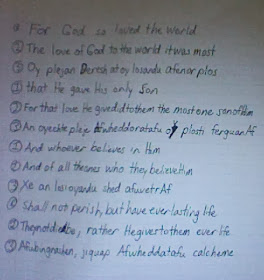 ① For God so loved the world
② The love of God to the world it was most
③ Oy plejan Deresh atoy losanda afenar plos
① that He gave His only Son
② For that love He gived it to them the most one son of Him
③ An oyechte pleje Afwheddoratafu oy plosti ferguan Af
① And whoever believes in Him
② And of all theones who they believe Him
③ Xe an lesloyandu shed afuvetr Af
① Shall not perish, but have everlasting life
② They not die, rather He giver to them ever life
③ jiguap Afwheddatafu calcheme